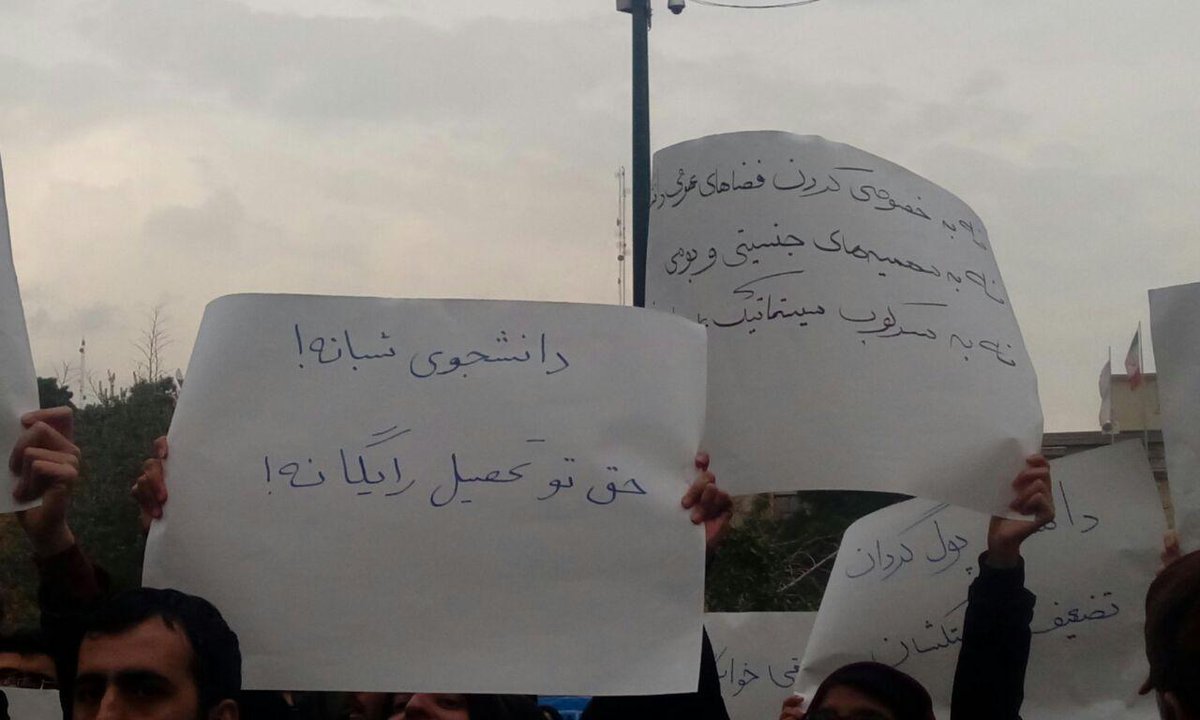 دانشجوی شبانه!
حق تو تحصیل رایگانه!
نه به خصوصی کردن فضاهای عمومی
نه به سهمیه‌های جنسیتی و بومی
نه به سرکوب سیستماتیک
پول گردان
تضعیف